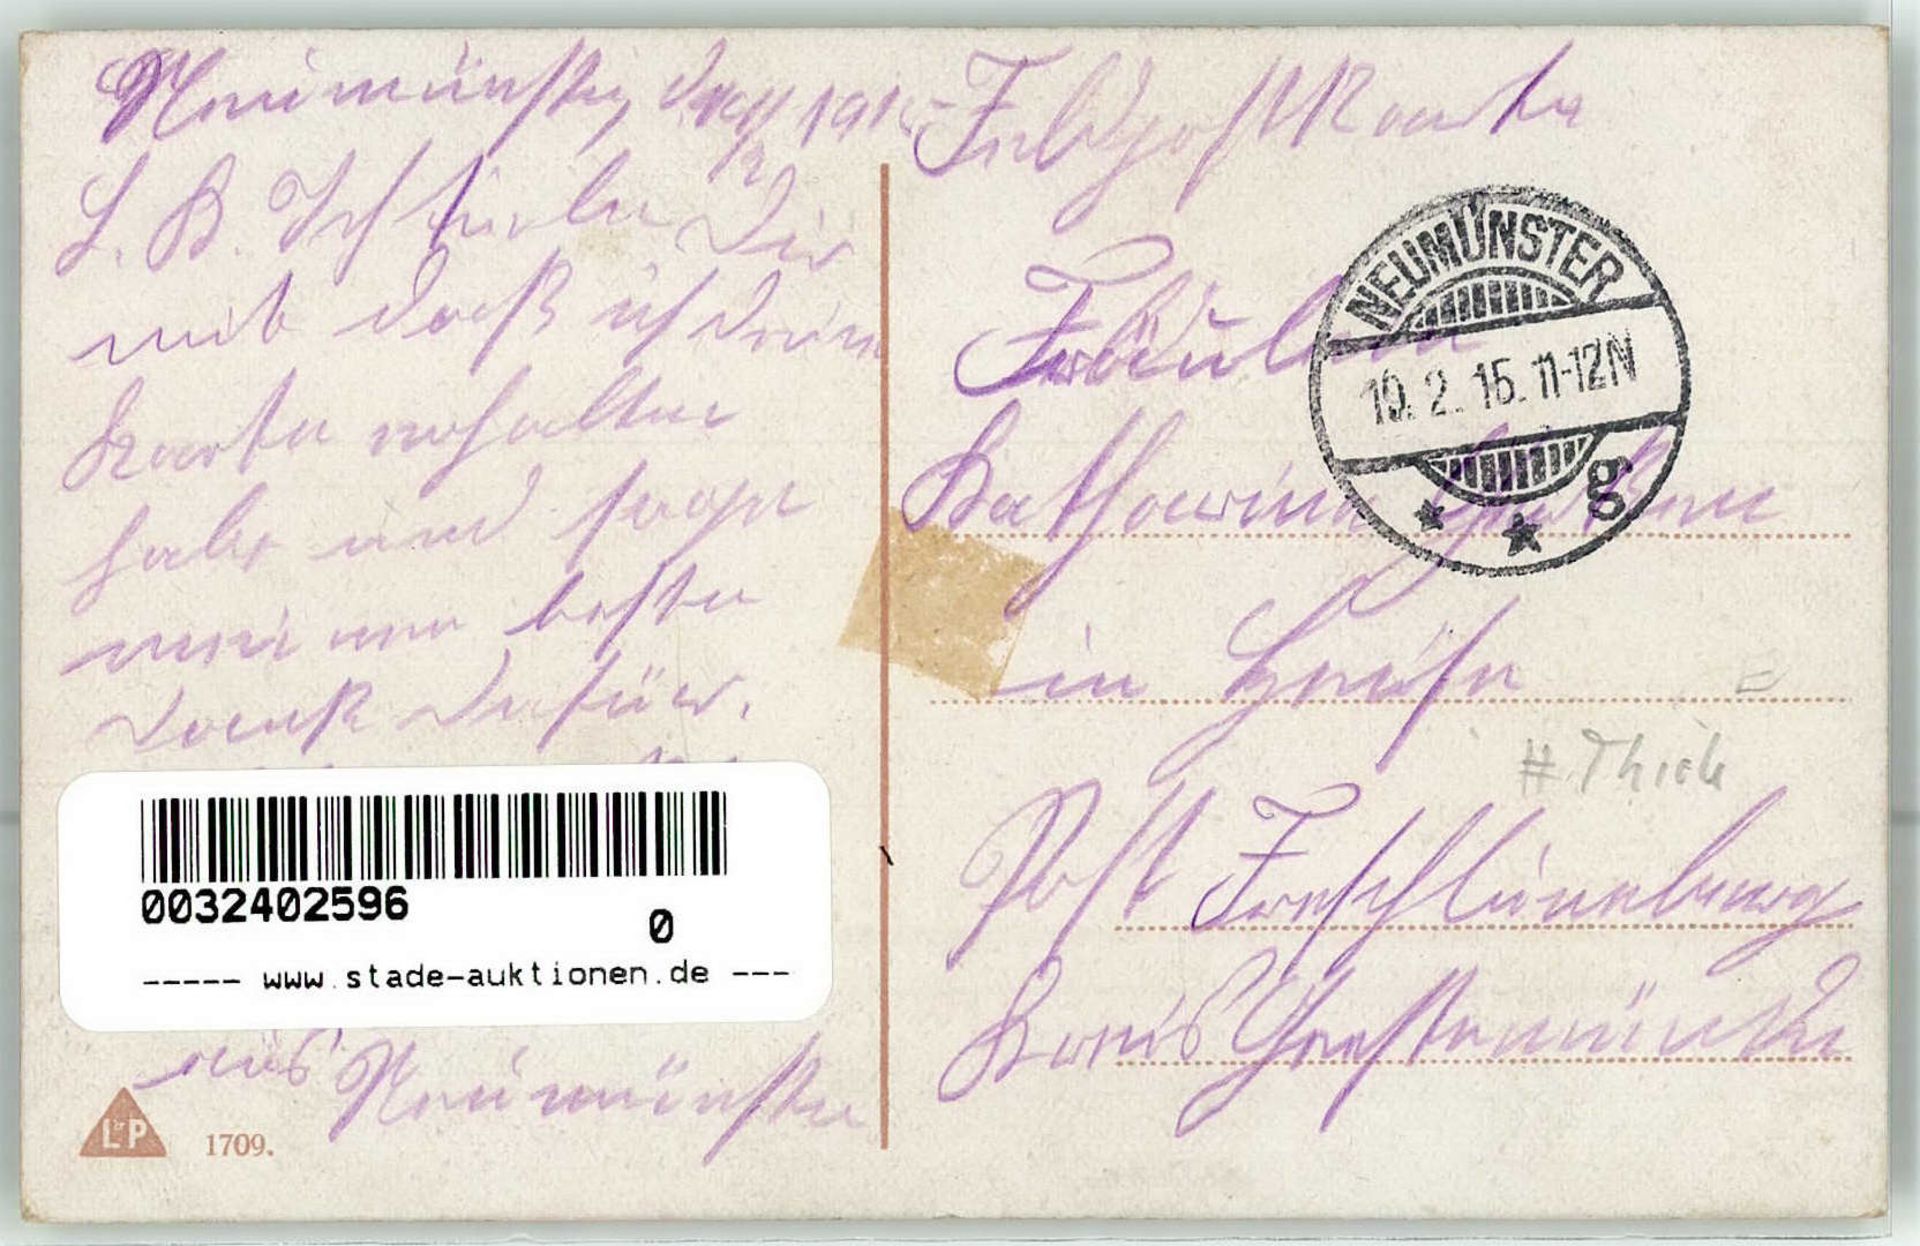 Neumünster, den 1915
L. B. Ich teile Dir
mit daß ich deine
Karte erhalten
habe und sage
meinen besten
Dank dafür.
aus Neumünster
L&P
1709.
0032402596
0
----- www.stade-auktionen.de ---
Feldpostkarte
Fräulein
Katharina
in Heise
Post Freschluneburg
Kreis Geestemünde
NEUMÜNSTER
10. 2. 15. 11-12N
g
# Thiele